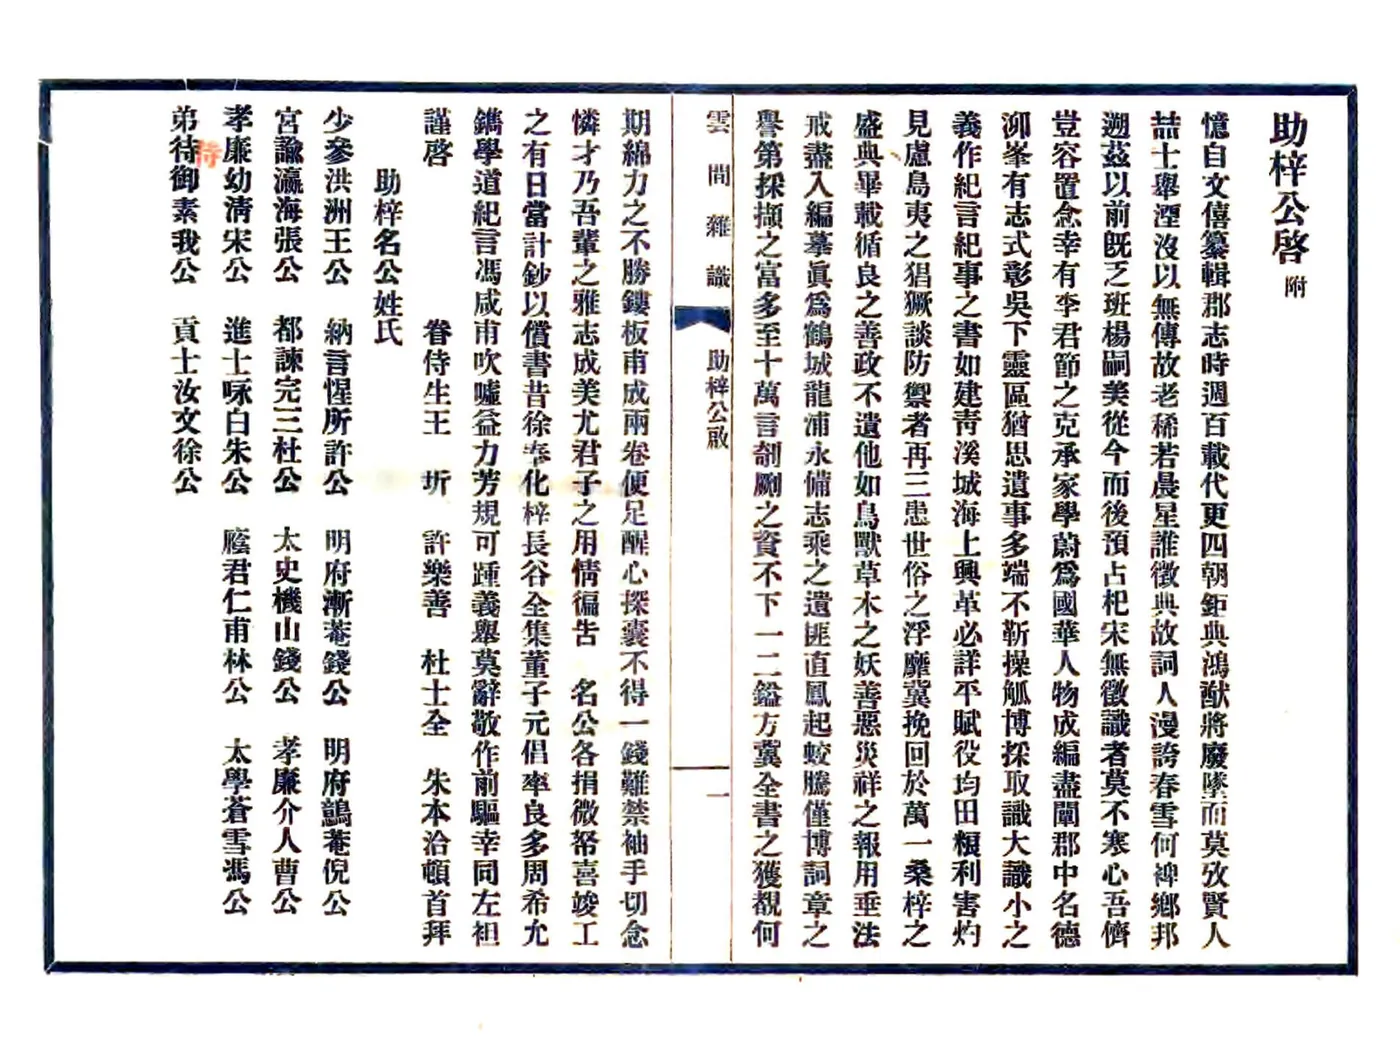 助梓公啓 附
憶自文僖纂輯郡志時週百載代更四朝鉅典鴻猷將廢墜而莫攷賢人
喆士舉湮沒以無傳故老稀若晨星誰徵典故詞人漫誇春雪何裨鄉邦
遡茲以前旣乏班楊嗣美從今而後預占杞宋無徵識者莫不寒心吾儕
豈容置念幸有李君節之克承家學蔚爲國華人物成編盡闡郡中名德
泖峯有志式彰吳下靈區猶思遺事多端不靳操觚博採取識大識小之
義作紀言紀事之書如建靑溪城海上興革必詳平賦役均田糧利害灼
見慮島夷之猖獗談防禦者再三患世俗之浮靡冀挽回於萬一桑梓之
盛典畢載循良之善政不遺他如鳥獸草木之妖善惡災祥之報用垂法
戒盡入編摹眞爲鶴城龍浦永備志乘之遺匪直鳳起蛟騰僅博詞章之
譽第採擷之富多至十萬言剞劂之資不下一二鎰方冀全書之獲覩何
雲間雜識 助梓公啟 一
期綿力之不勝鏤板甫成兩卷便足醒心探囊不得一錢難禁袖手切念
憐才乃吾輩之雅志成美尤君子之用情徧告 名公各捐微帑喜竣工
之有日當計鈔以償書昔徐奉化梓長谷全集董子元倡率良多周希允
鐫學道紀言馮咸甫吹噓益力芳規可踵義舉莫辭敬作前驅幸同左袒
謹啓 眷侍生王 圻 許樂善 杜士全 朱本洽頓首拜
助梓名公姓氏
少參洪洲王公 納言惺所許公 明府漸菴錢公 明府鷾菴倪公
宮諭瀛海張公 都諫完三杜公 太史機山錢公 孝廉介人曹公
孝廉幼淸宋公 進士咏白朱公 廕君仁甫林公 太學蒼雪馮公
弟待御素我公 貢士汝文徐公
侍